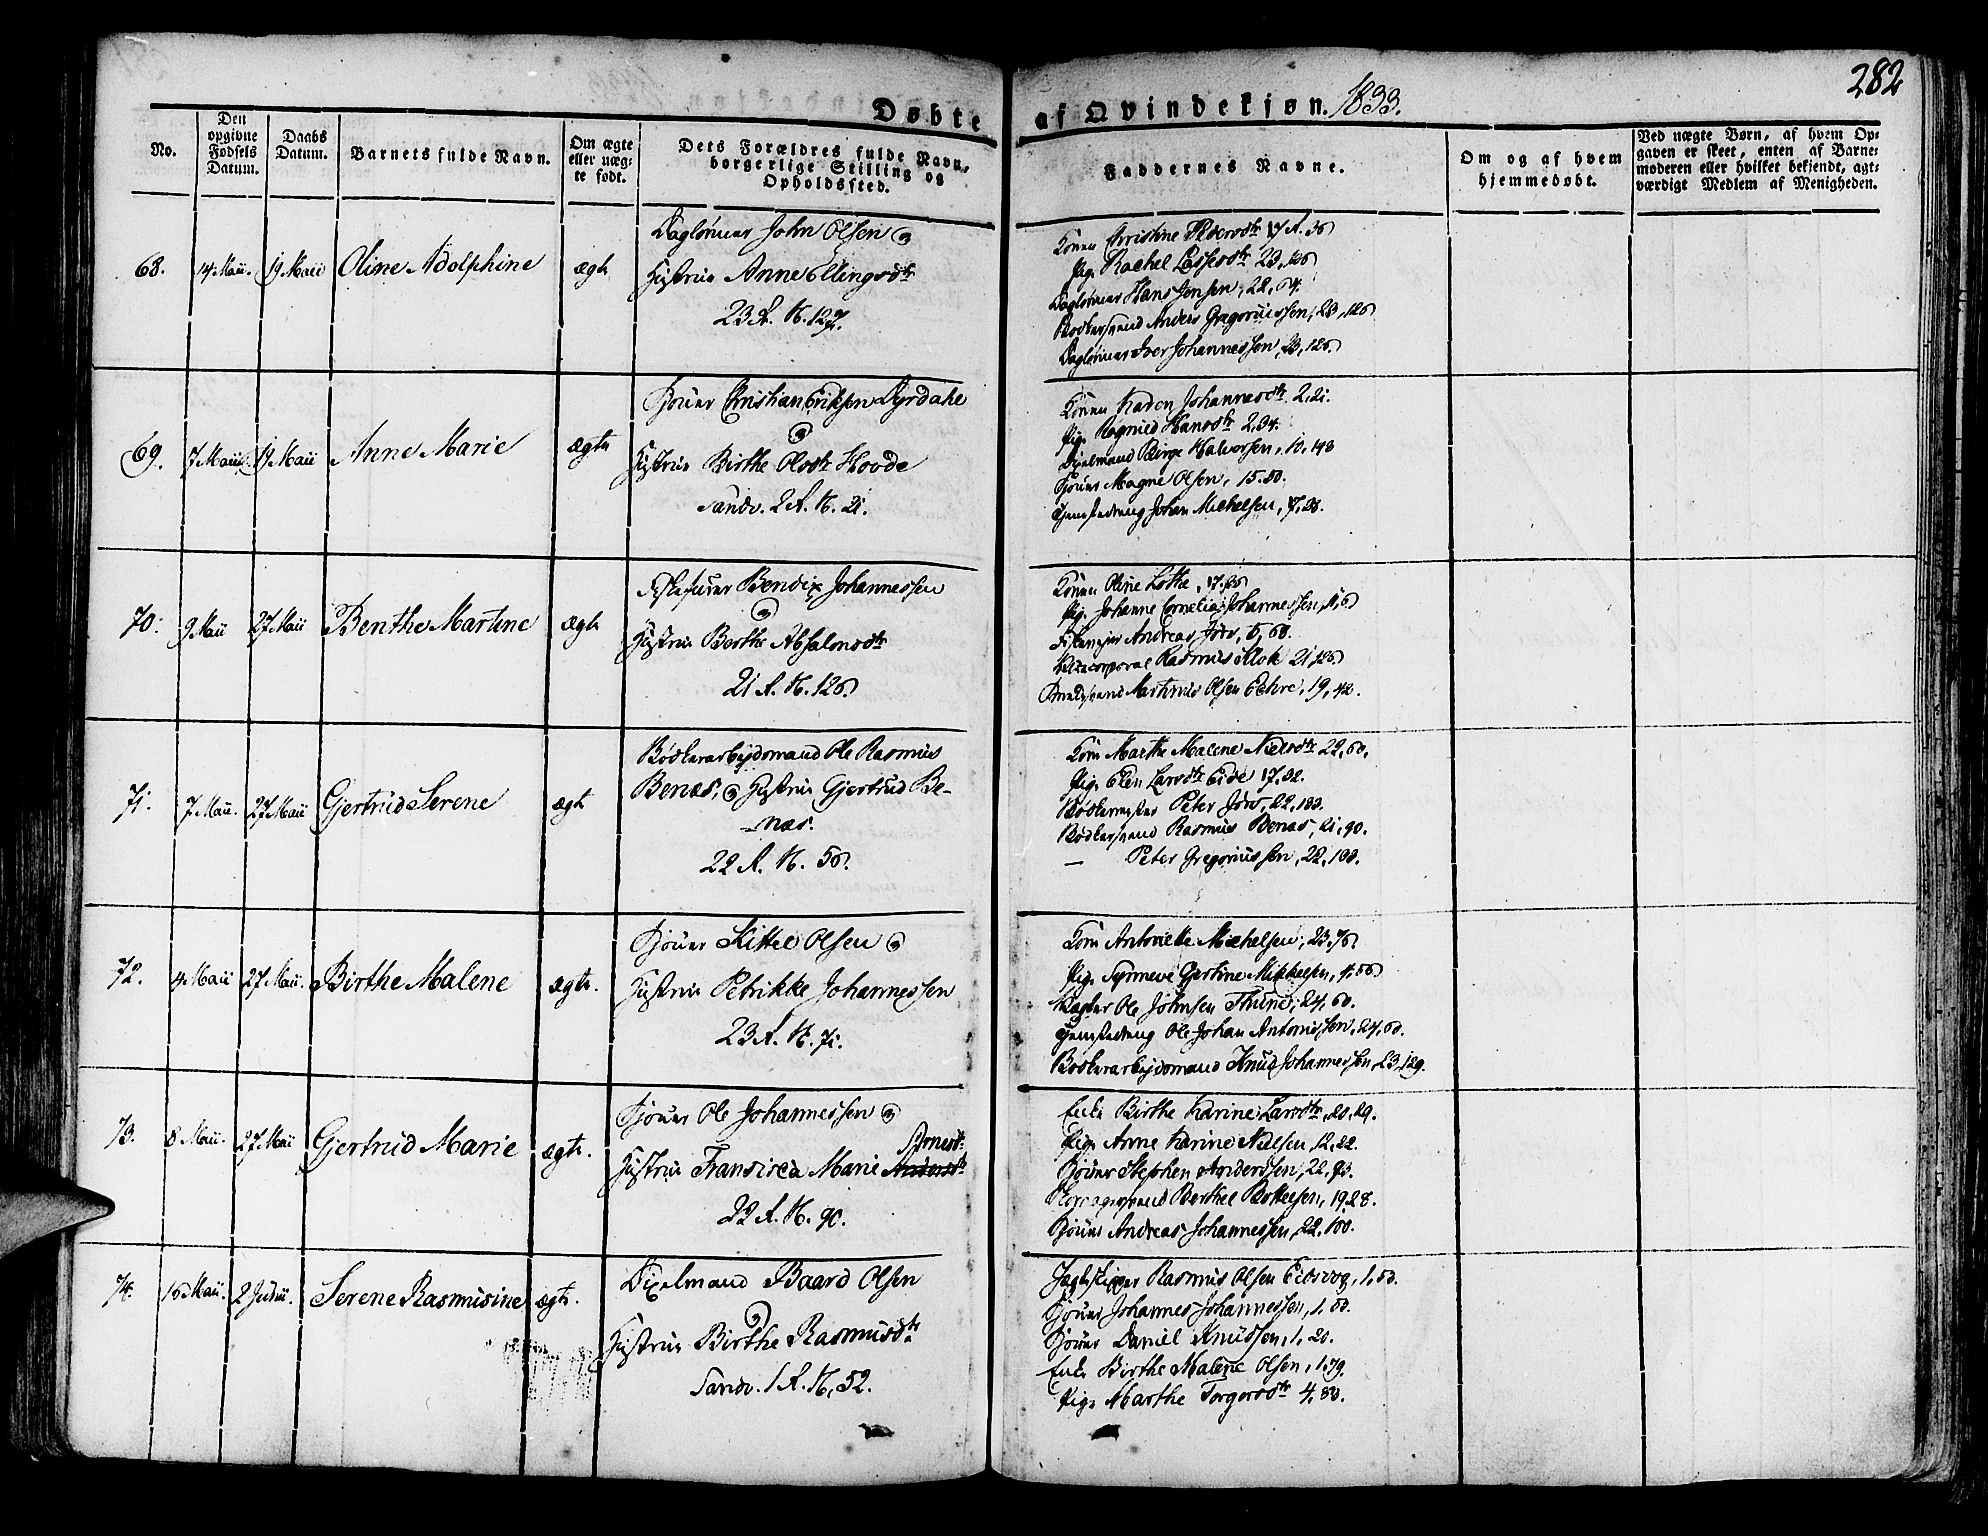 282
Døbte af Qvindekjøn. 1833.
No.
Den opgivne Fødsels Datum.
Daabs Datum.
Barnets fulde Navn.
Om ægte eller uægte født.
Dets Forældres fulde Navn, borgerlige Stilling og Opholdssted.
Faddernes Navne.
Om og af hvem hjemmedøbt.
Ved uægte Børn, af hvem Opgaven er skeet, enten af Barnemoderen eller hvilket bekjendt, agtværdigt Medlem af Menigheden.
68. 14 Maii. 19 Maii Oline Adolphine ægte
Daglønner John Olsen og
Hustrue Anne Ellingsdtr
23 A. N. 127.
Konen Christine Pedersdtr 17 A. 36
Pig. Rachel Lassesdtr 23, 126
Daglønner Hans Jensen, 22, 64.
Bødkersvend Anders Gregoriussen, 23, 126
Daglønner Iver Johannessen, 23, 126
69. 7 Maii 19 Maii Anne Marie ægte
Christian Eriksen Dyrdahl
og
Hustrue Birthe Olsdtr Hovde
Sandv. 2 A. N. 21.
Konen Karen Johannesdtr 2, 21.
Pig. Ragnild Hansdtr 2, 34.
Dixelmand Børge Halvorsen, 10, 143
Magne Olsen, 15. 50.
Johan Michelsen, 7, 23.
70. 9 Maii 27 Maii Benthe Martine ægte
Bendix Johannessen
og
Hustrue Berthe Absalonsdtr
21 A. N. 126
Konen Oline Lothe, 17, 26
Pig. Johanne Cornelia Johannessen, 1, 6
Andreas Jörs, 5, 68.
Vicecorporal Rasmus Klok 21, 126
Martinus Olsen Eehre, 19, 42.
71. 7 Maii. 27 Maii Gjertrud Serene ægte
Bødkerarbejdsmand Ole Rasmus
Benæs, og Hustrue Gjertrud Be-
-næs.
22 A. N. 56.
Kone Marthe Malene Nielsdtr 22, 60.
Pig. Elen Larsdtr Eide 17. 32.
Bødkermester Peter Jörs, 22, 133.
Bødkersvend Rasmus Benæs, 21, 90.
— Peter Gregoriussen, 22, 133.
72. 4 Maii 27 Maii. Birthe Malene ægte.
Kittel Olsen og
Hustrue Petrikke Johannessen
23 A. N. 71.
Kone Antonette Michelsen, 23, 76
Pig. Gjertine Mikkelsen, 4. 56
Ole Johnsen Thune, 24, 60.
Ole Johan Antonissen, 24, 60.
Bødkerarbejdsmand Knud Johannessen, 23, 129.
73. 8 Maii. 27 Maii Gjertrud Marie ægte.
Ole Johannessen og
Hustrue Fransisca Marie Andersdtr
22 A. N. 90.
Enke Birthe Karine Larsdtr, 20, 29.
Pig. Anne Karine Nielsen, 12, 22.
Stephen Anderssen, 22, 93.
Berthel Bertelsen, 19. 28.
Andreas Johannessen, 22, 100.
74. 16 Maii. 2 Junii. Serene Rasmusine ægte.
Dixelmand Baard Olsen
og
Hustrue Birthe Rasmusdtr
Sandv. 1 A. N. 52.
Jagtskipper Rasmus Olsen, 1, 50.
Johannes Johannessen, 1. 50.
Daniel Knudsen, 1, 20.
Enke Birthe Malene Olsen, 1. 79.
Pige Marthe Torgersdtr 4, 83.